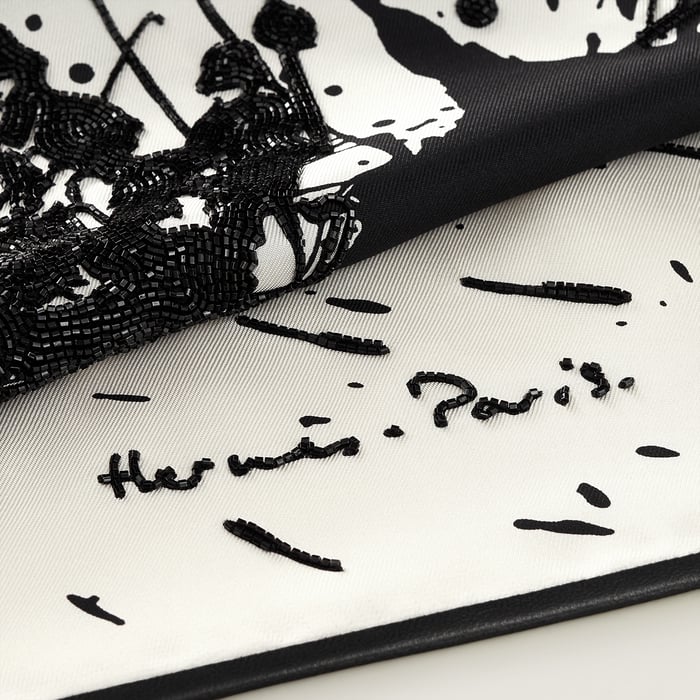 Hermès - Paris.